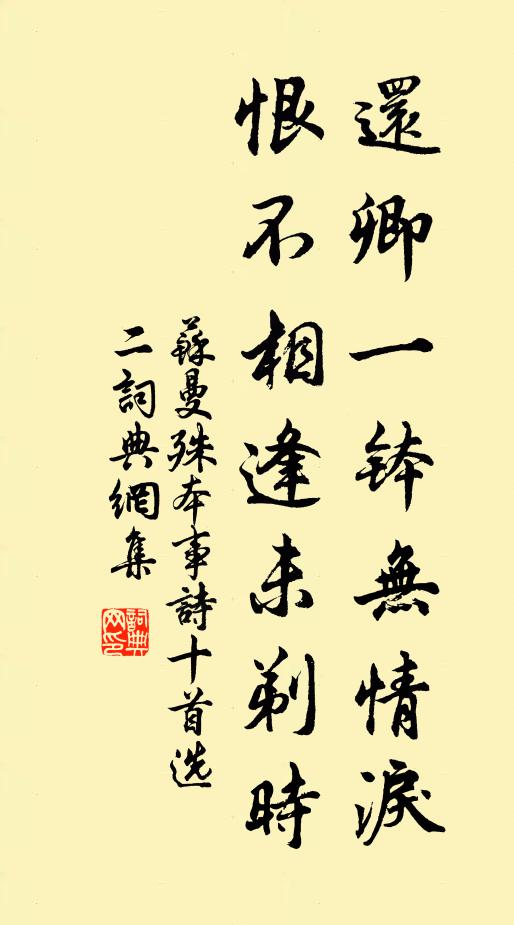 還卿一鉢無情淚
恨不相逢未剃時
蘇曼殊本事詩十首选
二詞典網集
詞典网印